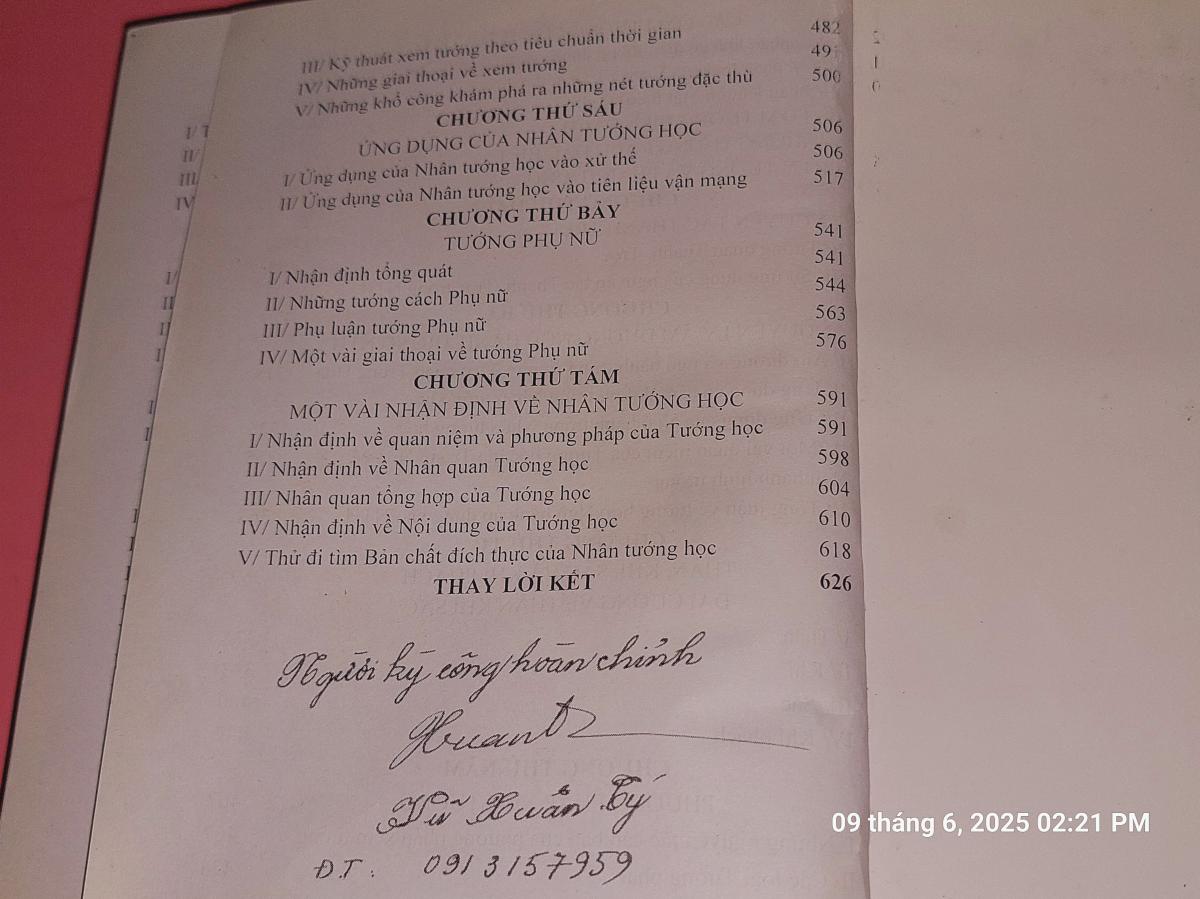 III/ Kỹ thuát xem tướng theo tiêu chuẩn thời gian 482
IV/ Những giai thoại về xem tướng 491
V/ Những khổ công khám phá ra những nét tướng đặc thù 500
CHƯƠNG THỨ SÁU
ỨNG DỤNG CỦA NHÂN TƯỚNG HỌC 506
I/ Ứng dụng của Nhân tướng học vào xử thế 506
II/ Ứng dụng của Nhân tướng học vào tiên liệu vận mạng 517
CHƯƠNG THỨ BẢY
TƯỚNG PHỤ NỮ 541
I/ Nhận định tổng quát 541
II/ Những tướng cách Phụ nữ 544
III/ Phụ luận tướng Phụ nữ 563
IV/ Một vài giai thoại về tướng Phụ nữ 576
CHƯƠNG THỨ TÁM
MỘT VÀI NHẬN ĐỊNH VỀ NHÂN TƯỚNG HỌC 591
I/ Nhận định về quan niệm và phương pháp của Tướng học 591
II/ Nhận định về Nhân quan Tướng học 598
III/ Nhân quan tổng hợp của Tướng học 604
IV/ Nhận định về Nội dung của Tướng học 610
V/ Thử đi tìm Bản chất đích thực của Nhân tướng học 618
THAY LỜI KẾT 626
Người kỳ công hoàn chỉnh
Xuân
Đ.T: 0913157959
09 tháng 6, 2025 02:21 PM